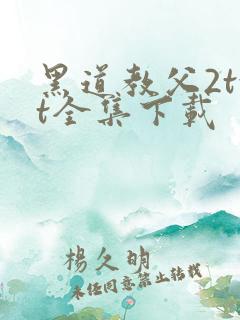 黑道教父2tx
t全集下载
杨久明
未经同意禁止转载